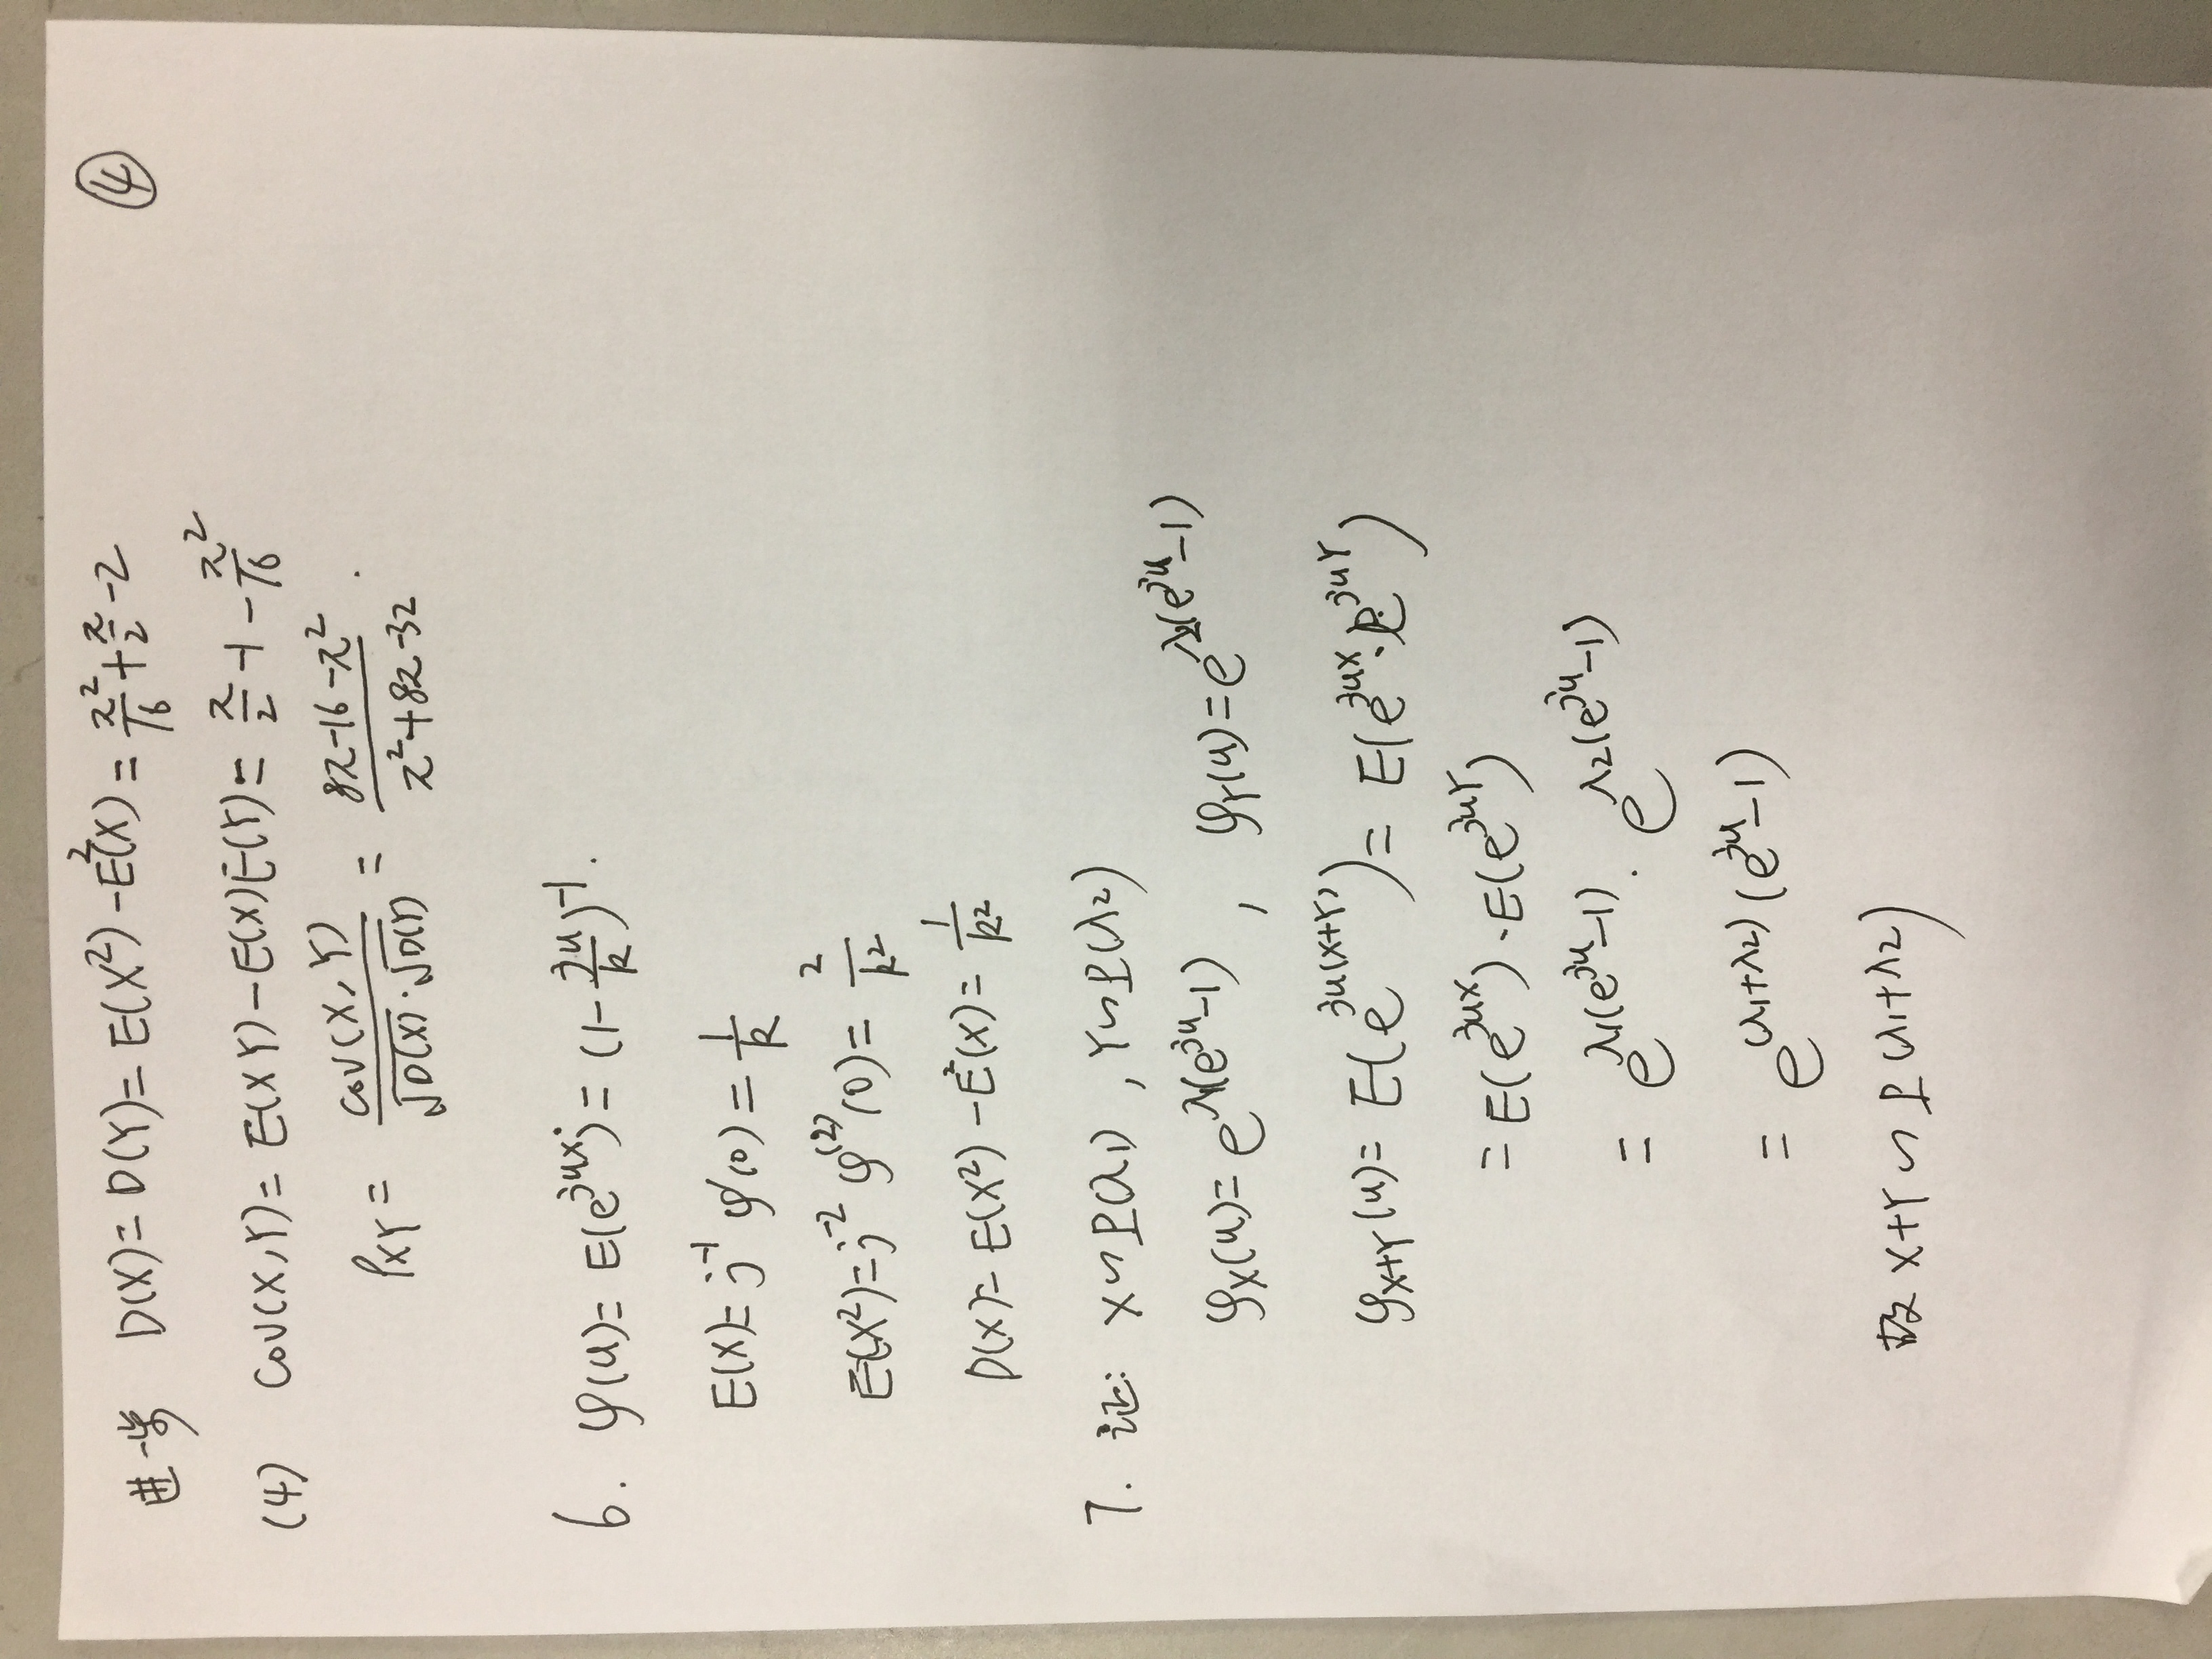 ④
进一步 D(X)=D(Y)=E(X²)-E²(X)=π²/16+π/2-2
(4) COV(X,Y)=E(XY)-E(X)E(Y)=π/2-1-π²/16
ρXY=cov(X,Y)/√D(X)·√D(Y)=8π-16-π²/π²+8π-32.
6. φ(u)=E(e^{jux})=(1-ju/k)^{-1}.
E(X)=j^{-1}φ'(0)=1/k
E(X²)=j^{-2}φ^{(2)}(0)=2/k²
D(X)=E(X²)-E²(X)=1/k²
7. 证: X~P(λ1), Y~P(λ2)
φX(u)=e^{λ1(e^{ju}-1)}, φY(u)=e^{λ2(e^{ju}-1)}
φX+Y(u)=E(e^{ju(X+Y)})=E(e^{juX}·e^{juY})
=E(e^{juX})·E(e^{juY})
=e^{λ1(e^{ju}-1)}·e^{λ2(e^{ju}-1)}
=e^{(λ1+λ2)(e^{ju}-1)}
故 X+Y~P(λ1+λ2)